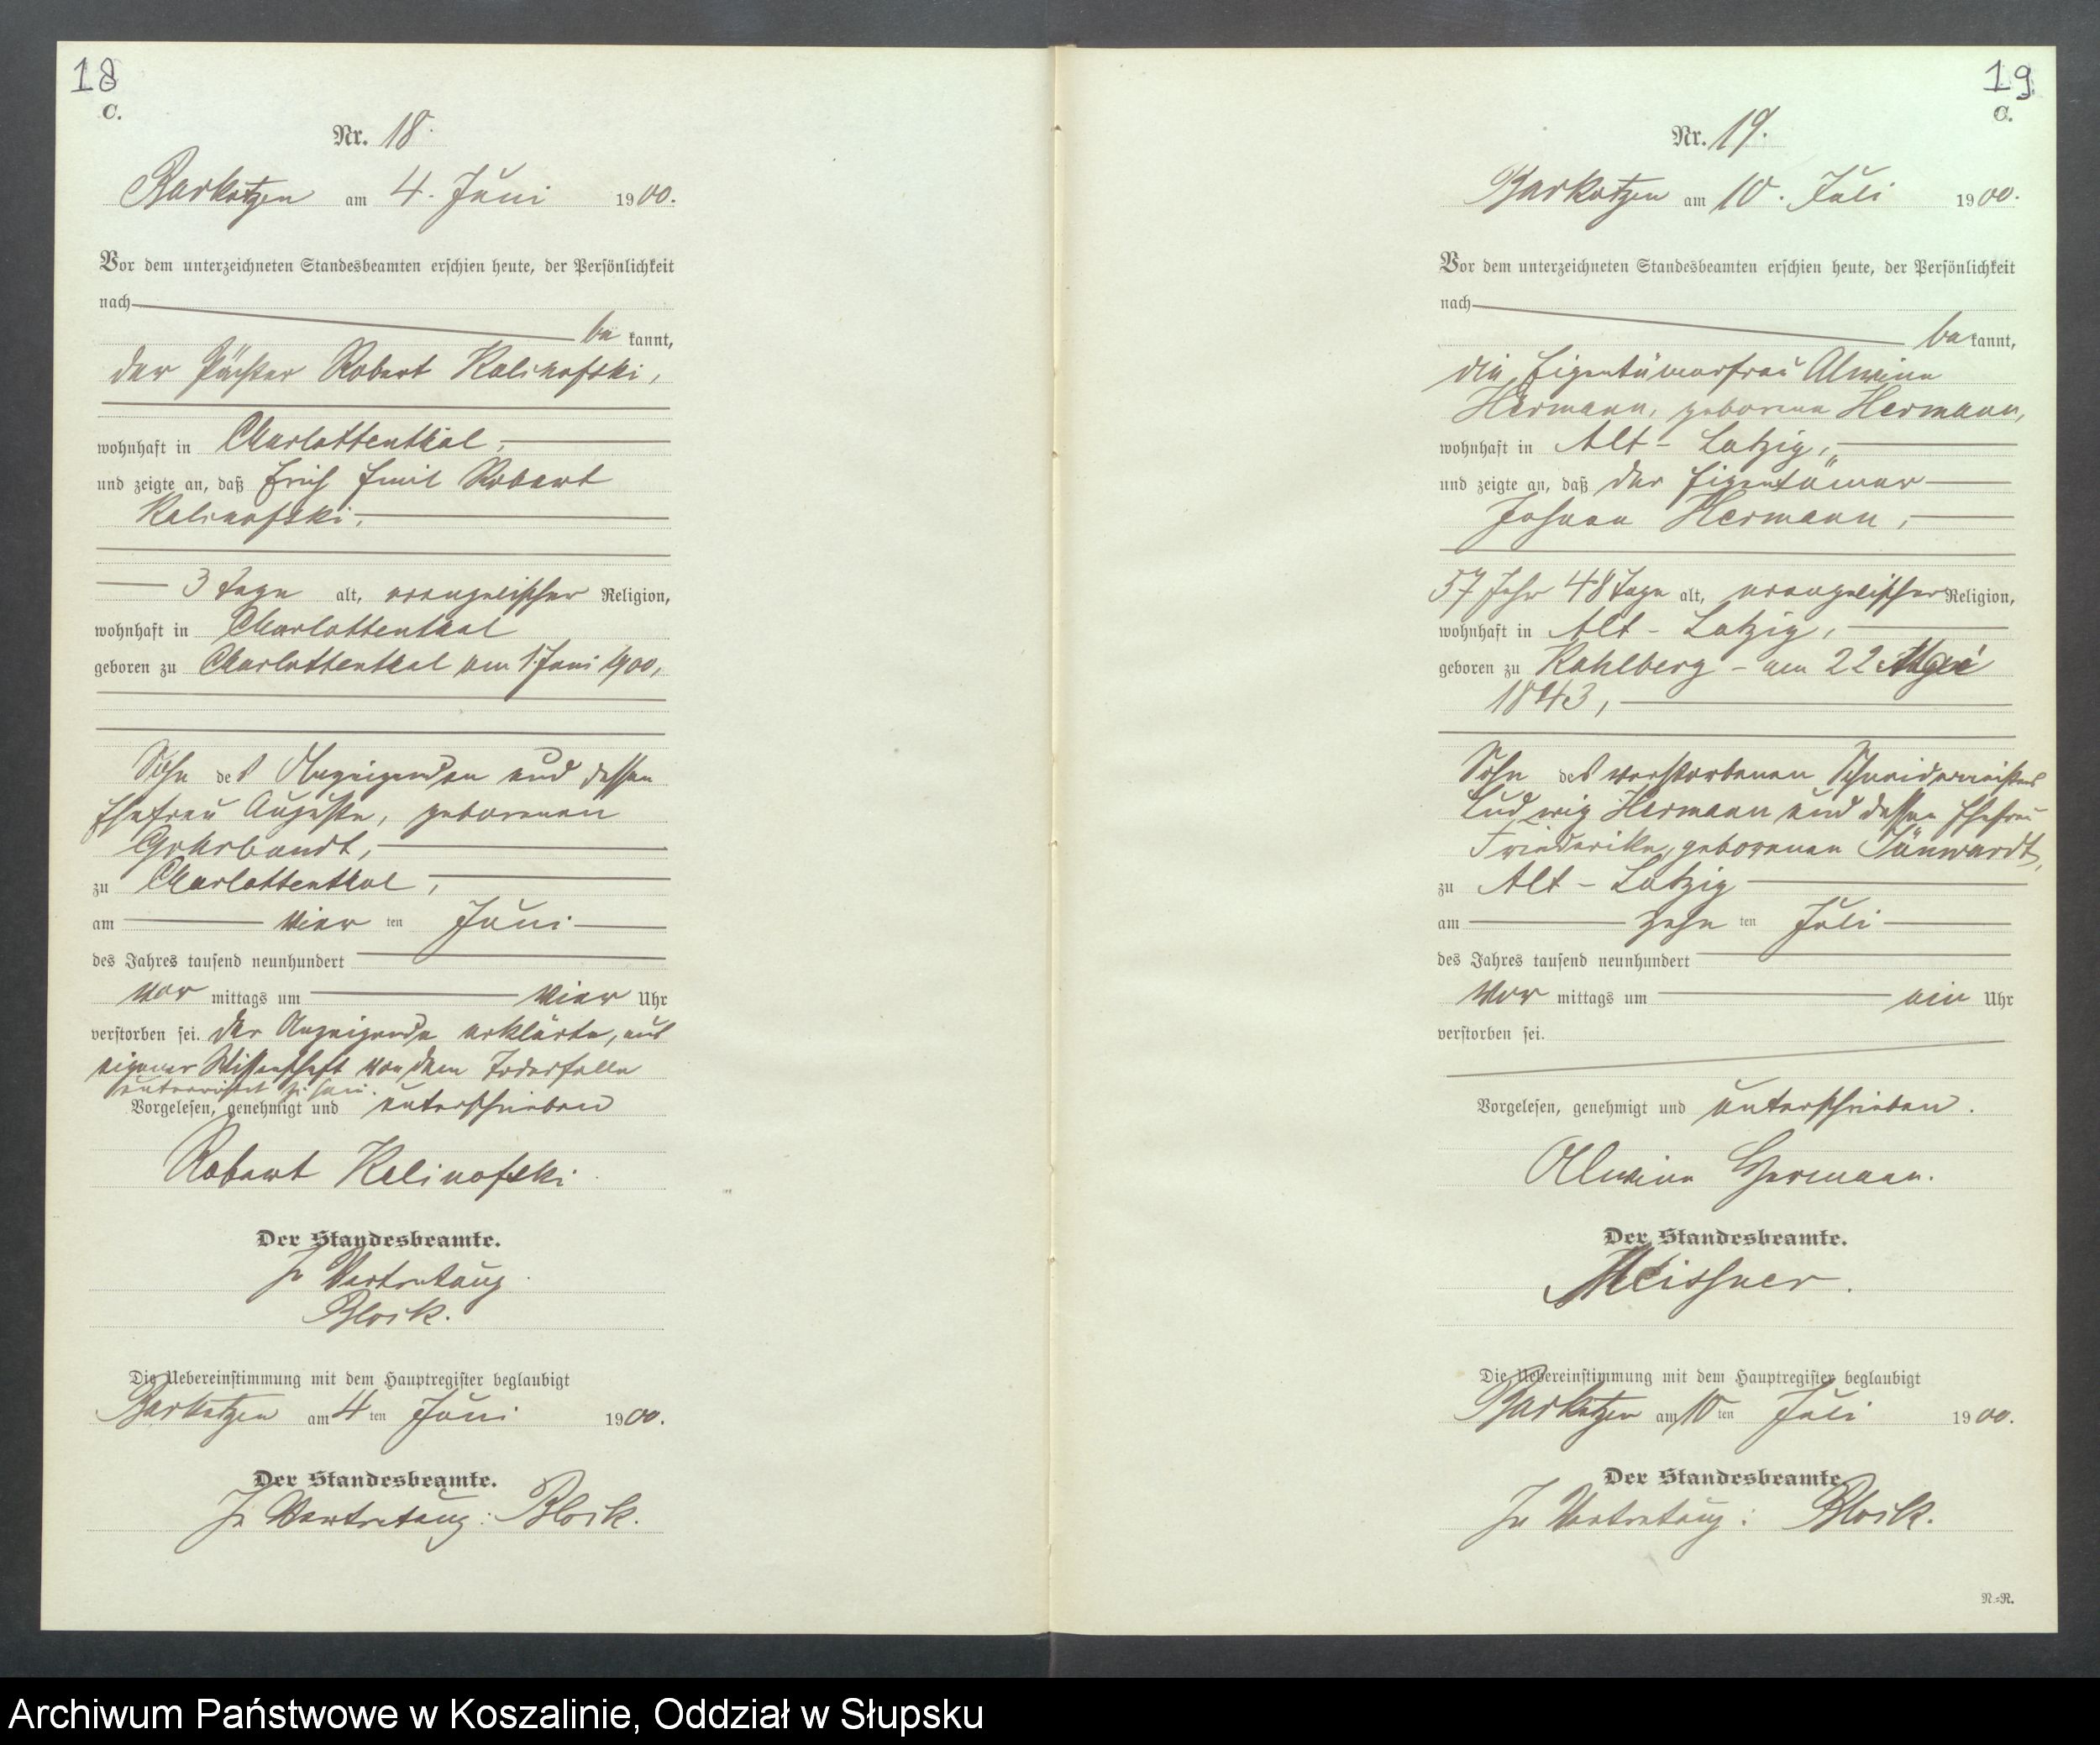 18
C.
Nr. 18.
Barkotzen am 4. Juni 1900.
Vor dem unterzeichneten Standesbeamten erschien heute, der Persönlichkeit
nach
be kannt,
der Pächter Robert Kalinofski,
wohnhaft in Charlottenthal,
und zeigte an, daß Erich Emil Robert
Kalinofski,
3 Tage alt, evangelischer Religion,
wohnhaft in Charlottenthal
geboren zu Charlottenthal am 1. Juni 1900,
Sohn des Anzeigenden und dessen
Ehefrau Auguste, geborenen
Gohrbandt,
zu Charlottenthal,
am vier ten Juni
des Jahres tausend neunhundert
vor mittags um vier Uhr
verstorben sei. Der Anzeigende erklärte, aus
eigener Wissenschaft von dem Todesfalle
unterrichtet zu sein.
Vorgelesen, genehmigt und unterschrieben
Robert Kalinofski
Der Standesbeamte.
In Vertretung
Block.
Die Uebereinstimmung mit dem Hauptregister beglaubigt
Barkotzen am 4 ten Juni 1900.
Der Standesbeamte.
In Vertretung: Block.
19
C.
Nr. 19.
Barkotzen am 10. Juli 1900.
Vor dem unterzeichneten Standesbeamten erschien heute, der Persönlichkeit
nach
be kannt,
die Eigentümerfrau Alwine
Hermann, geborene Hermann,
wohnhaft in Alt-Latzig,
und zeigte an, daß der Eigentümer
Johann Hermann,
57 Jahr 48 Tage alt, evangelischer Religion,
wohnhaft in Alt-Latzig,
geboren zu Kahlberg am 22 Mai
1843,
Sohn des verstorbenen Schneidermeisters
Ludwig Hermann und dessen Ehefrau
Friederike, geborenen
zu Alt-Latzig
am zehn ten Juli
des Jahres tausend neunhundert
Vor mittags um ein Uhr
verstorben sei.
Vorgelesen, genehmigt und unterschrieben.
Alwine Hermann.
Der Standesbeamte.
Meissner.
Die Uebereinstimmung mit dem Hauptregister beglaubigt
Barkotzen am 10 ten Juli 1900.
Der Standesbeamte
In Vertretung: Block.
N.=R.
Archiwum Państwowe w Koszalinie, Oddział w Słupsku